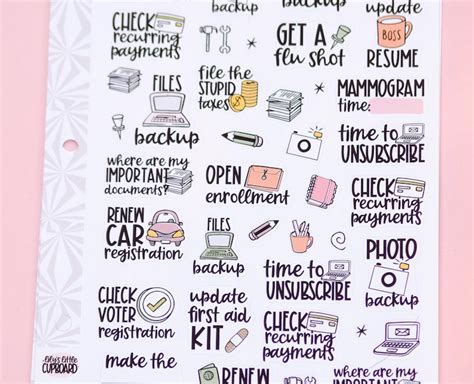 CHECK
recurring
payments
backup
GET A
flu shot
update
BOSS
RESUME
FILES
backup
file the
STUPID
taxes
MAMMOGRAM
time:
time to
UNSUBSCRIBE
where are my
IMPORTANT
documents?
OPEN
enrollment
CHECK
recurring
payments
RENEW
CAR
registration
FILES
backup
time to
UNSUBSCRIBE
PHOTO
backup
CHECK
VOTER
registration
update
first aid
KIT
CHECK
recurring
payments
lily's little
CUPBOARD
make the
RENEW
backup